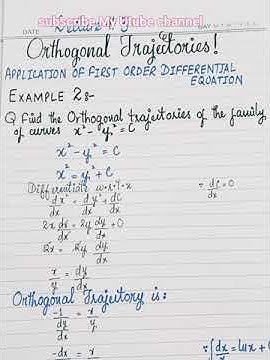 subscribe My Utube channel
DATE
DAY M T W T F S S
Orthogonal Trajectories!
APPLICATION OF FIRST ORDER DIFFERENTIAL
EQUATION
EXAMPLE 2:-
Q Find the Orthogonal trajectories of the family
of curves x² - y² = C
x² - y² = C
x² = y² + C
Differentiate w.r.t.x
dx²/dx = dy²/dx + dC/dx ∵ dC/dx = 0
2x dx/dx = 2y dy/dx + 0
2x = 2y dy/dx
x/y = dy/dx
Orthogonal Trajectory is:
-1/(dy/dx) = x/y
-dx = x
∵ ∫dx/x = ln x +